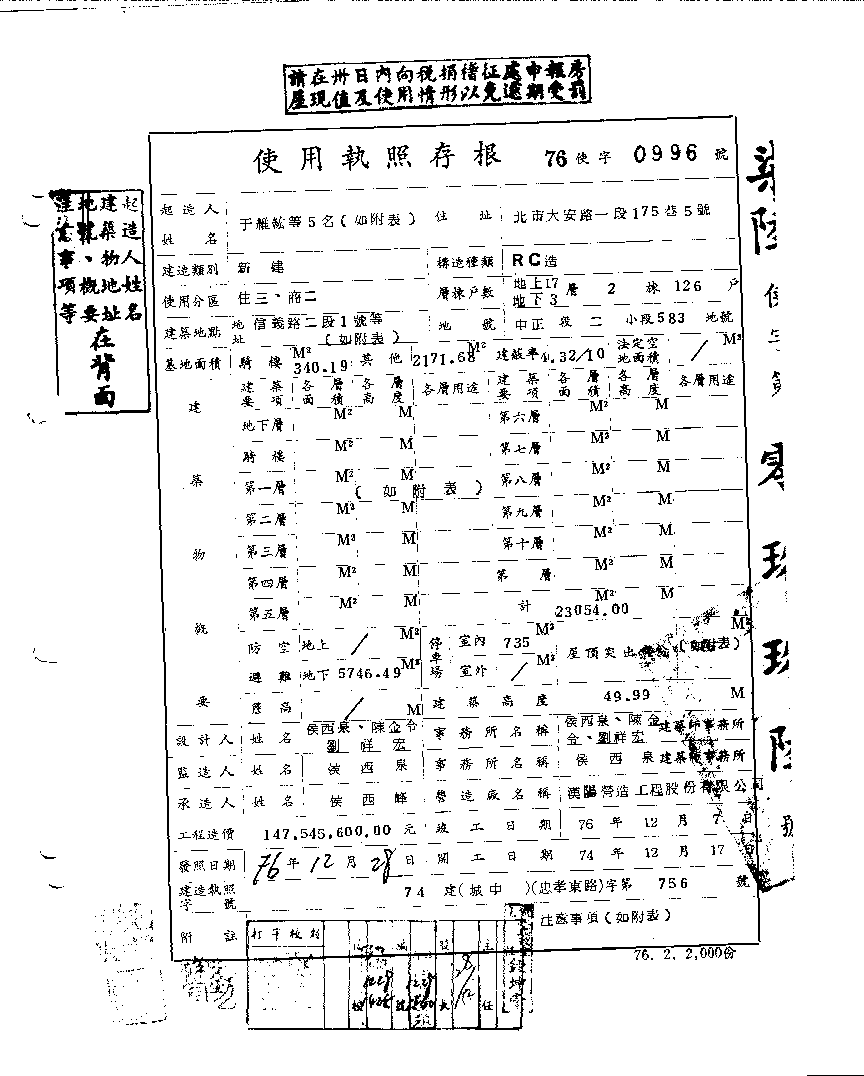 請在卅日內向稅捐稽征處申報房
屋現值及使用情形以免逾期受罰
使用執照存根 76使字 0996 號
起造人
建築物地址
地號、概要
注意事項等
在背面
起造人姓名 于維紘等5名(如附表) 住址 北市大安路一段175巷5號
建造類別 新建 構造種類 RC造
使用分區 住三、商二 層棟戶數 地上17 地下3 層 2 棟 126 戶
建築地點 地址 信義路二段1號等(如附表) 地號 中正 段 二 小段583 地號
基地面積 騎樓 340.19 M² 其他 2171.68 M² 建蔽率 4.32/10 法定空地面積 / M²
建築物概要
建築要項 各層面積 各層高度 各層用途 建築要項 各層面積 各層高度 各層用途
地下層 M² M 第六層 M² M
騎樓 M² M 第七層 M² M
第一層 M² M (如附表) 第八層 M² M
第二層 M² M 第九層 M² M
第三層 M² M 第十層 M² M
第四層 M² M 第 層 M² M
第五層 M² M 計 23054.00 M²
防空避難 地上 / M² 停車場 室內 735 M² 屋頂突出 (如附表)
地下 5746.49 M² 室外 / M²
簷高 / M 建築高度 49.99 M
設計人 姓名 侯西泉、陳金令 劉祥宏 事務所名稱 侯西泉、陳金令、劉祥宏 建築師事務所
監造人 姓名 侯西泉 事務所名稱 侯西泉 建築師事務所
承造人 姓名 侯西峰 營造廠名稱 漢陽營造工程股份有限公司
工程造價 147,545,600.00 元 竣工日期 76 年 12 月 7 日
發照日期 76 年 12 月 28 日 開工日期 74 年 12 月 17 日
建造執照字號 74 建(城中)(忠孝東路)字第 756 號
附註 注意事項(如附表)
打字校對
76. 2. 2,000份